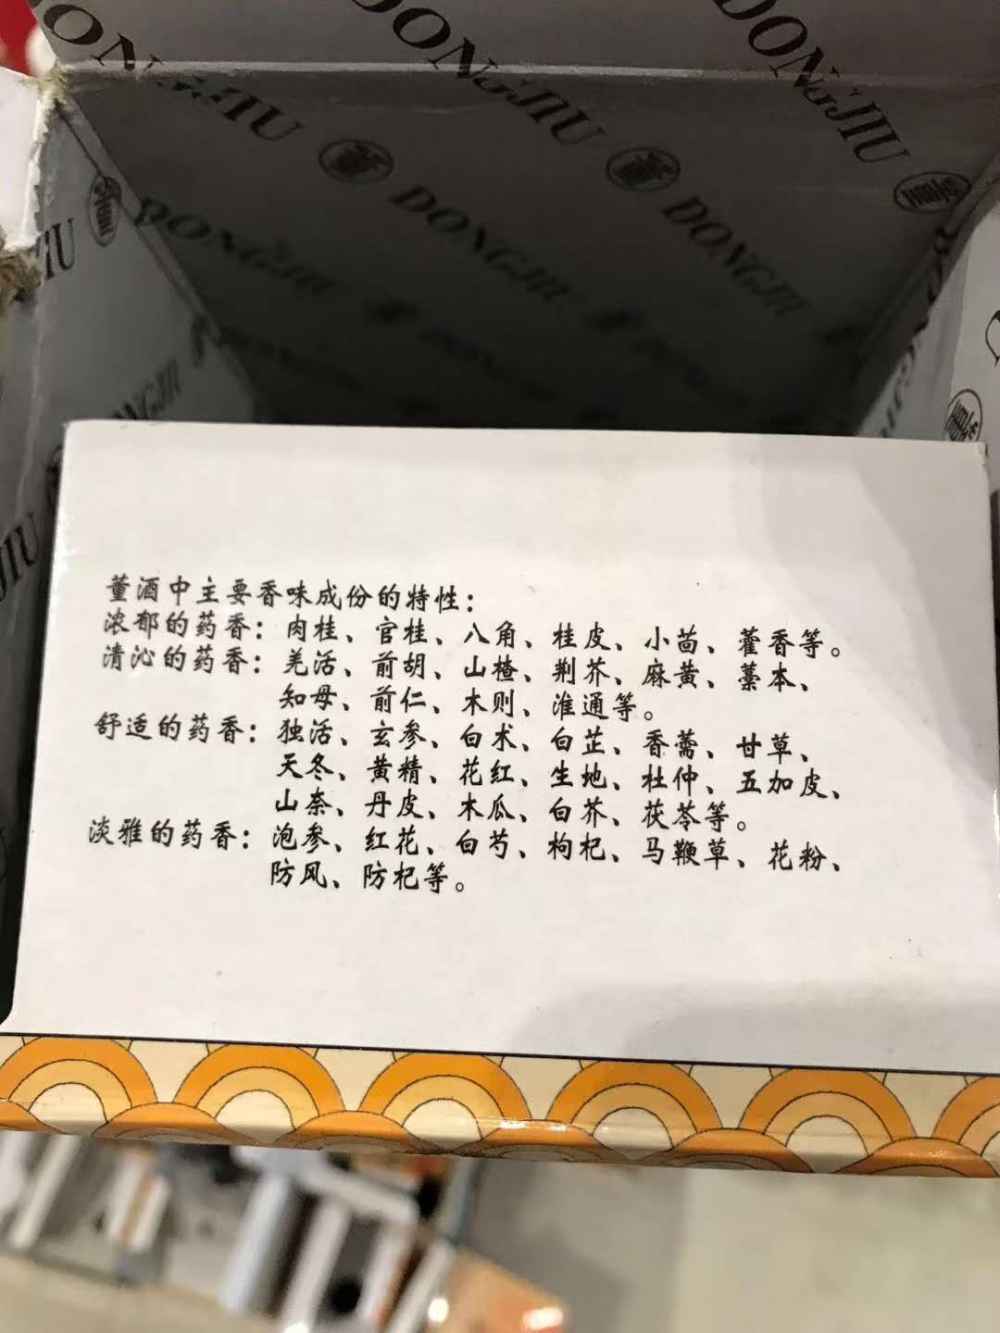 DONGJIU
DONGJIU
DONGJIU
董
董
董
DONGJIU
DONGJIU
董酒中主要香味成份的特性：
浓郁的药香：肉桂、官桂、八角、桂皮、小茴、藿香等。
清沁的药香：羌活、前胡、山楂、荆芥、麻黄、藁本、
知母、前仁、木则、淮通等。
舒适的药香：独活、玄参、白术、白芷、香薷、甘草、
天冬、黄精、花红、生地、杜仲、五加皮、
山奈、丹皮、木瓜、白芥、茯苓等。
淡雅的药香：泡参、红花、白芍、枸杞、马鞭草、花粉、
防风、防杞等。